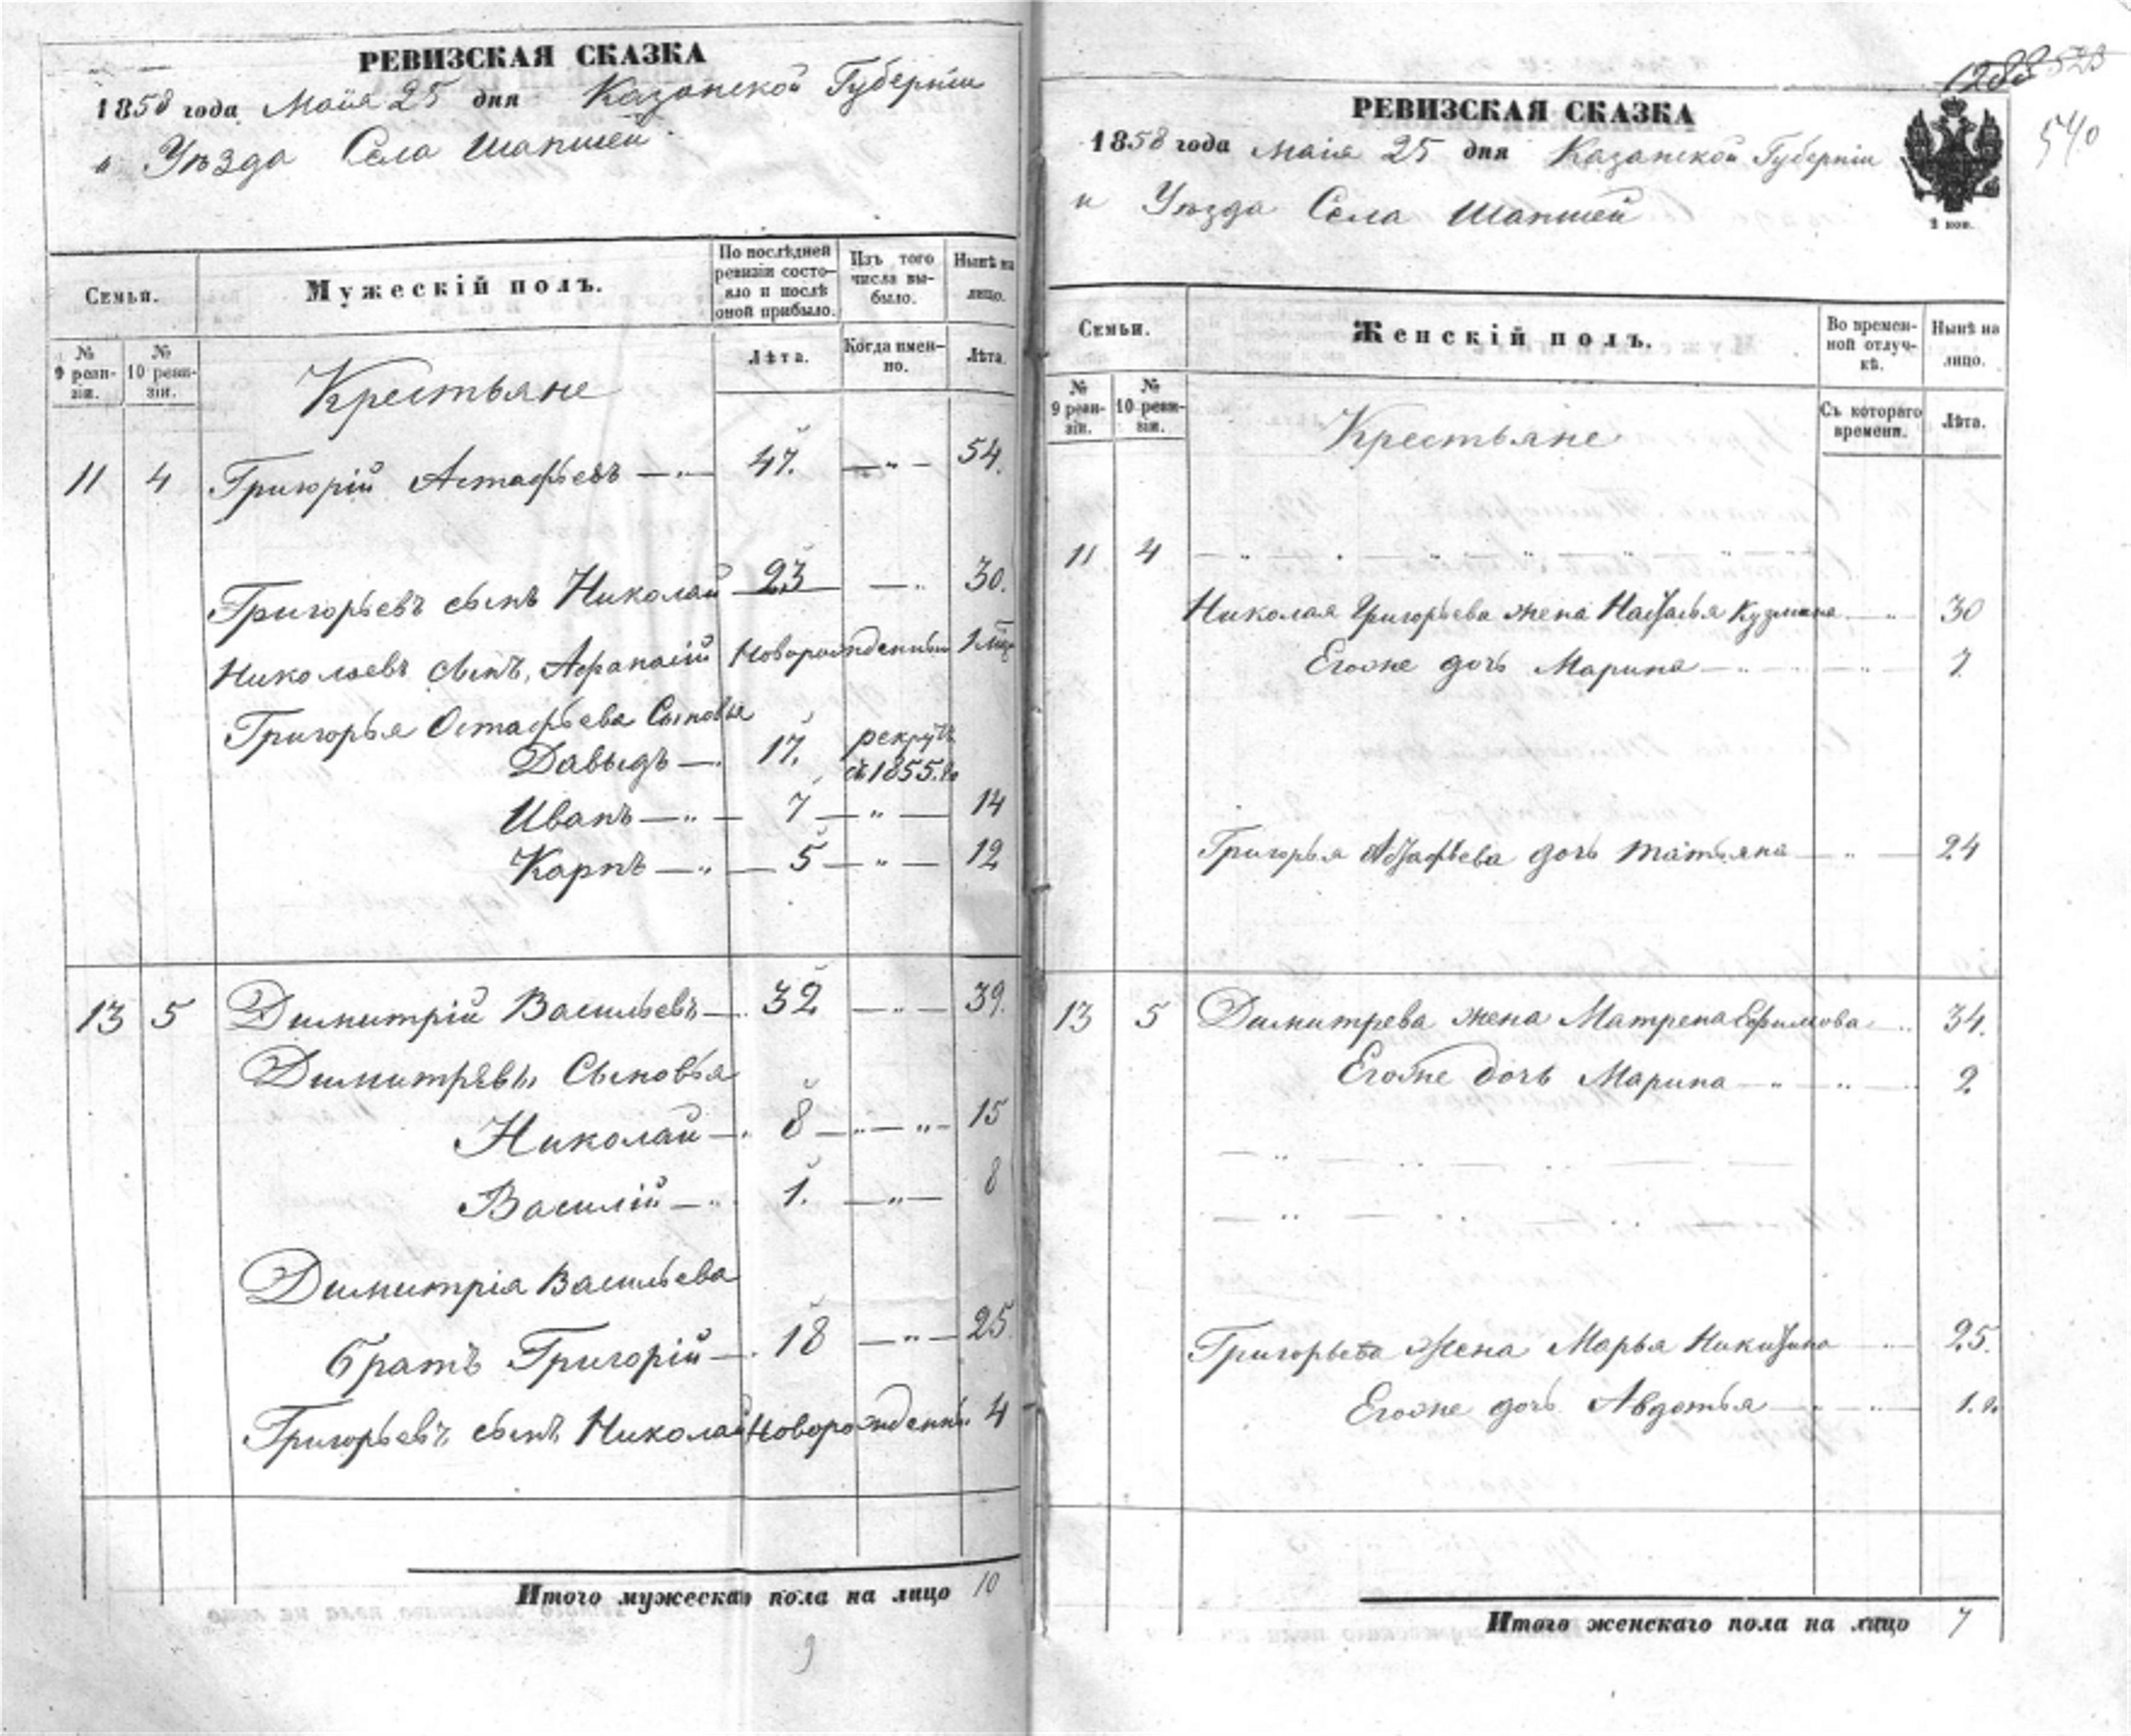 РЕВИЗСКАЯ СКАЗКА
1858 года Маія 25 дня Казанской Губерніи
и Уѣзда Села Шапшей
Семьи.
Мужескій полъ.
По послѣдней ревизіи состояло и послѣ оной прибыло.
Изъ того числа выбыло.
Нынѣ на лицо.
№ 9 ревизіи.
№ 10 ревизіи.
Лѣта.
Когда именно.
Лѣта.
Крестьяне
11 4 Григорій Астафьевъ — „ — 47. — „ — 54.
Григорьевъ сынъ Николай 23 — „ 30.
Николаевъ сынъ, Афанасій Новорожденный 1 мѣс
Григорья Остафьева Сыновья
Давыдъ — 17. рекрутъ съ 1855.го
Иванъ — „ — 7 — „ — 14
Карпъ — „ — 5 — „ — 12
13 5 Димитрій Васильевъ — 32 — „ — 39.
Димитрѣвы Сыновья
Николай — 8 — „ — „ — 15
Василій — „ 1. — „ — 8
Димитрія Васильева
братъ Григорій — 18 — „ — 25.
Григорьевъ сынъ Николай Новорожденный 4
Итого мужеска пола на лицо 10
9
1288 523
540
РЕВИЗСКАЯ СКАЗКА
1858 года маія 25 дня Казанской Губерніи
и Уѣзда Села Шапшей
2 коп.
Семьи.
Женскій полъ.
Во временной отлучкѣ.
Нынѣ на лицо.
№ 9 ревизіи.
№ 10 ревизіи.
Съ котораго времени.
Лѣта.
Крестьяне
11 4 — „ — „ — „ —
Николая Григорьева жена Наталья Кузмина — „ 30
Егоже дочь Марина — „ — „ — 7
Григорья Астафьева дочь татьяна — „ — 24
13 5 Димитрева жена Матрена Ефимова — „ 34.
Егоже дочь Марина — „ — „ — 2
Григорьева Жена Марья Никитина — „ — 25.
Егоже дочь Авдотья — „ — „ — 1. г.
Итого женскаго пола на лицо 7